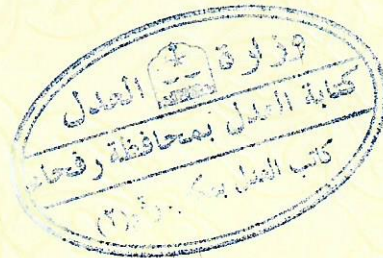 وزارة العدل
كتابة العدل بمحافظة رفحاء
كاتب العدل